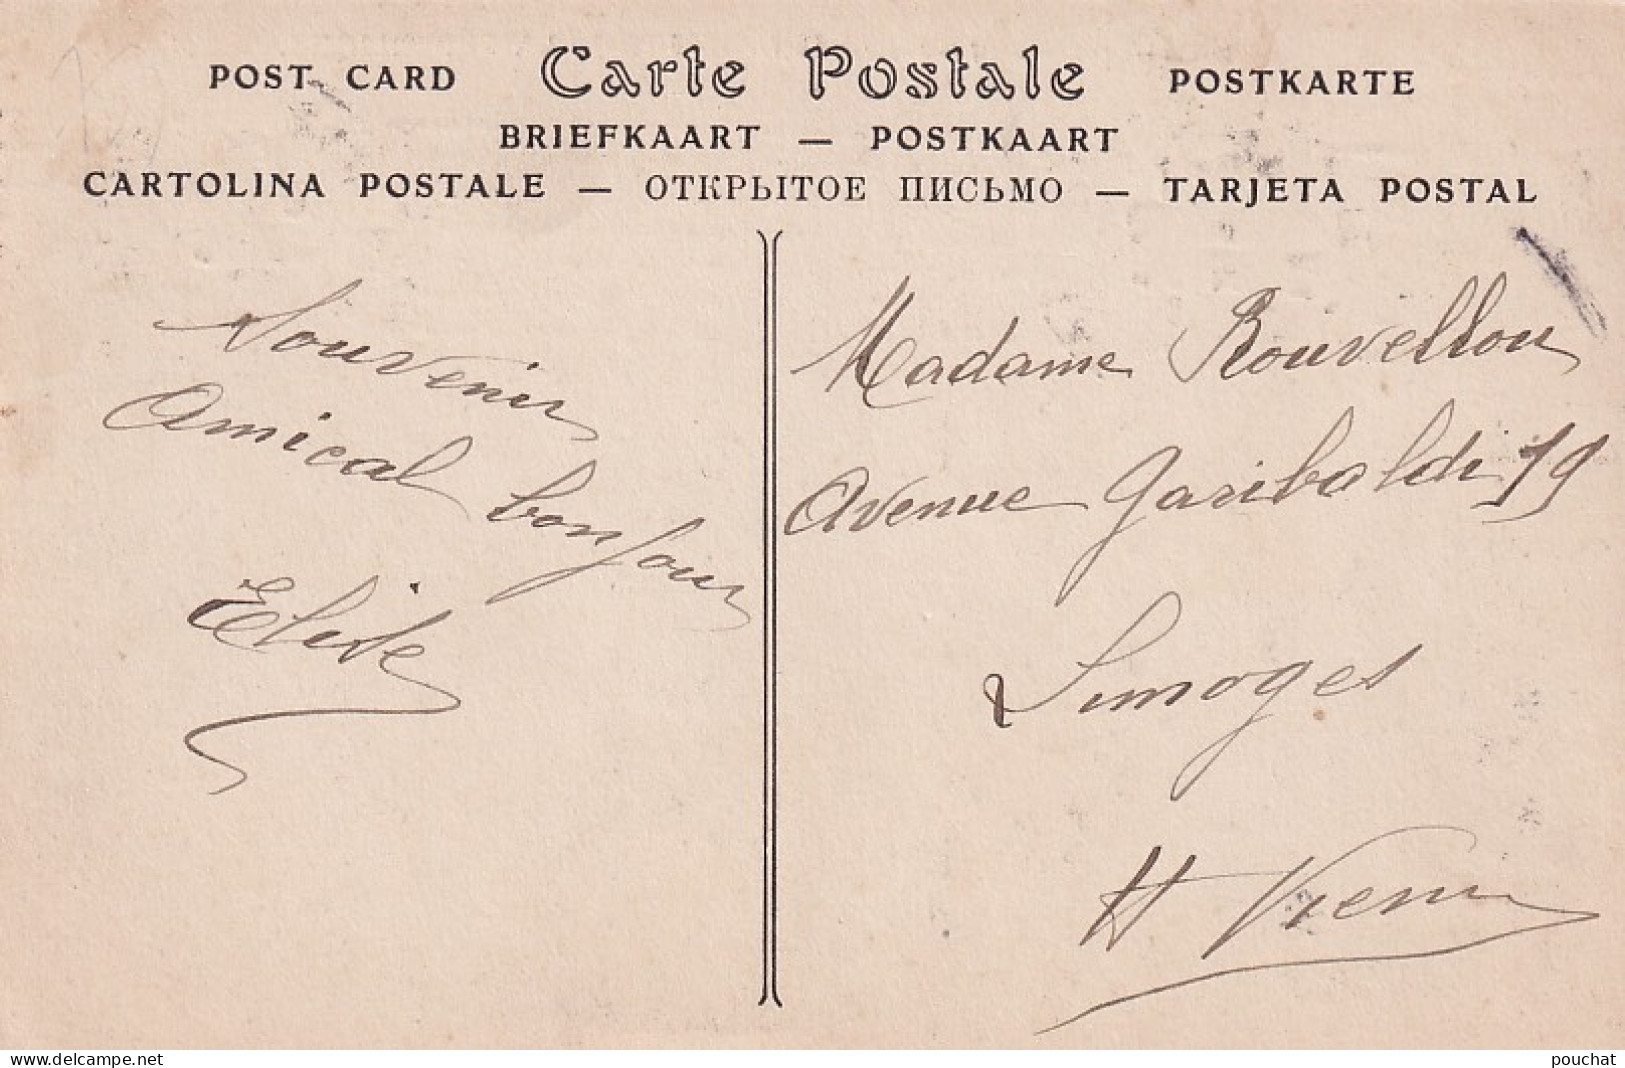 POST CARD Carte Postale POSTKARTE
BRIEFKAART — POSTKAART
CARTOLINA POSTALE — ОТКРЫТОЕ ПИСЬМО — TARJETA POSTAL
Souvenir
Amical bonjour
Elise
Madame Rouvellou
Avenue Garibaldi 79
Limoges
Hte Vienne
www.delcampe.net
pouchat